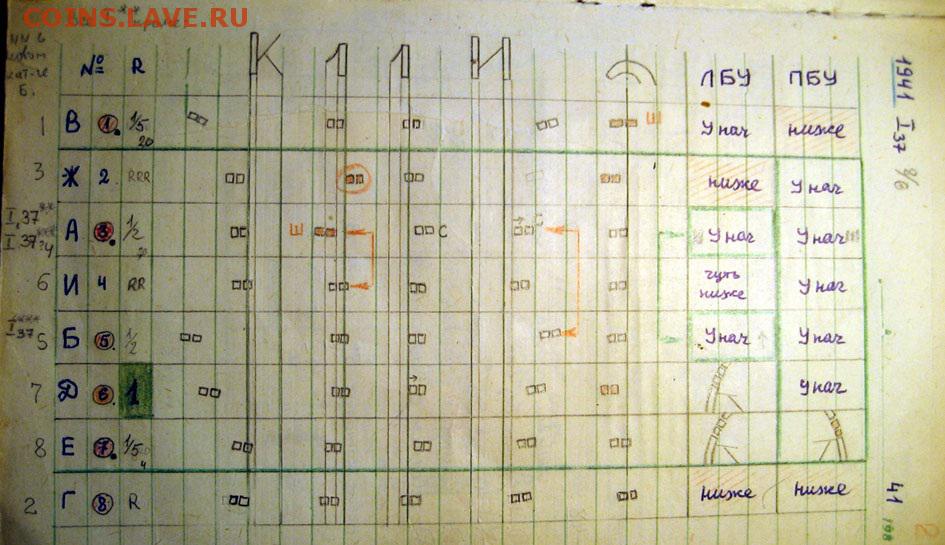 COINS.LAVE.RU
№ R К 1 1 И ЛБУ ПБУ
1 В 1. 1/5 20 Ш У нач ниже
3 Ж 2 RRR ниже У нач
I.37 А 3. 1/2 Ш С С У нач У нач
6 И 4 RR чуть ниже У нач
5 Б 5. 1/2 У нач У нач
7 Д 6. 1 У нач
8 Е 7. 1/5 4
2 Г 8 R ниже ниже
1941 I.37
41